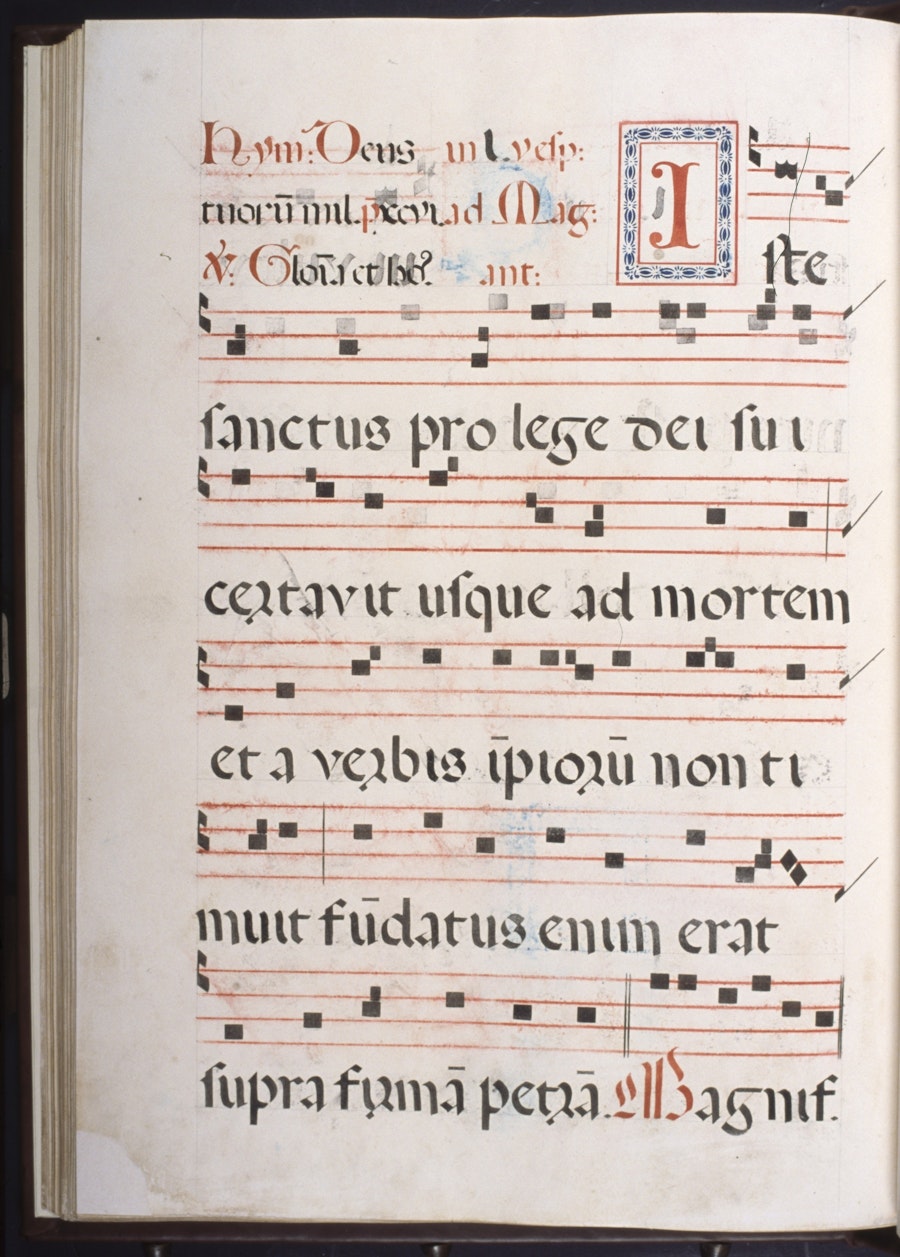 Hym: Deus in l. vesp:
tuorū mil. p xcvi. ad Mag:
℣. Gloria et ho. ant:
I
ste
sanctus pro lege dei sui
certavit usque ad mortem
et a verbis īpiorū non ti
muit fūdatus enim erat
supra firmā petrā. Magnif.